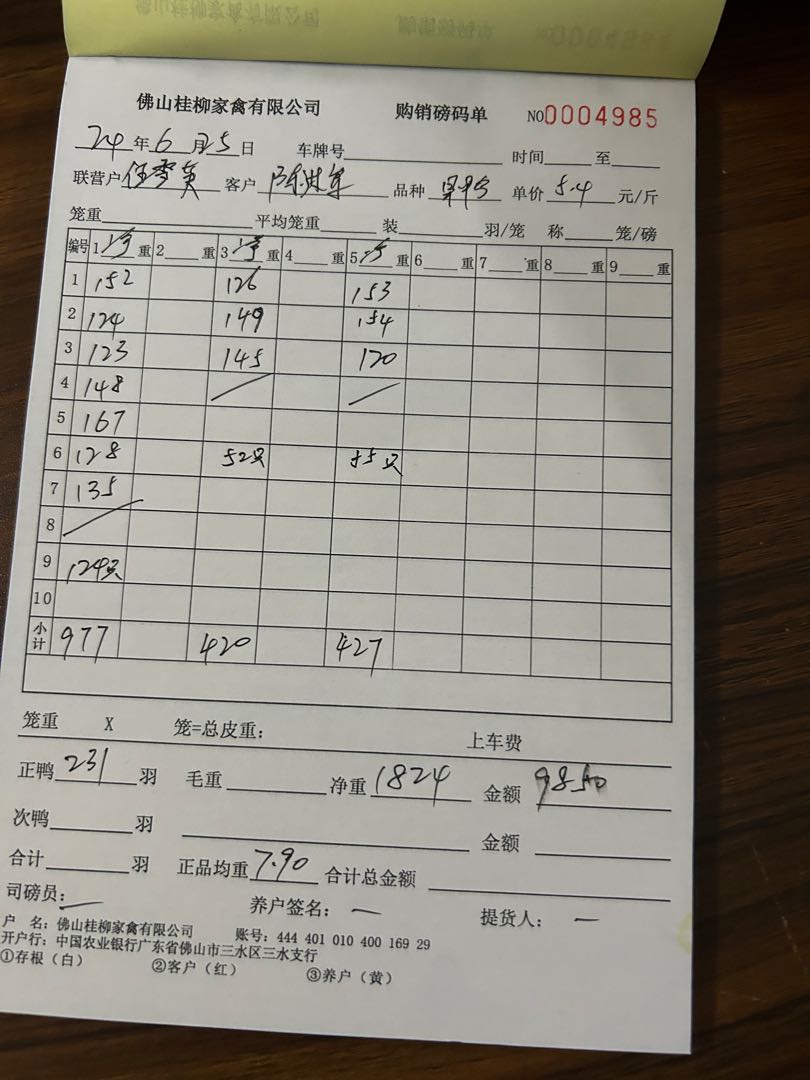 佛山桂柳家禽有限公司 购销磅码单 NO0004985
24年6月5日 车牌号 时间 至
联营户 伍雪英 客户 品种 单价 5.4 元/斤
笼重 平均笼重 装 羽/笼 称 笼/磅
编号 1 重 2 重 3 重 4 重 5 重 6 重 7 重 8 重 9 重
1 152 126 153
2 124 149 154
3 123 145 120
4 148
5 167
6 128 52只 55只
7 135
8
9 124只
10
小计 977 420 427
笼重 X 笼=总皮重: 上车费
正鸭 231 羽 毛重 净重 1824 金额 9850
次鸭 羽 金额
合计 羽 正品均重 7.90 合计总金额
司磅员: 养户签名: 提货人:
户 名: 佛山桂柳家禽有限公司 账号: 444 401 010 400 169 29
开户行: 中国农业银行广东省佛山市三水区三水支行
①存根(白) ②客户(红) ③养户(黄)